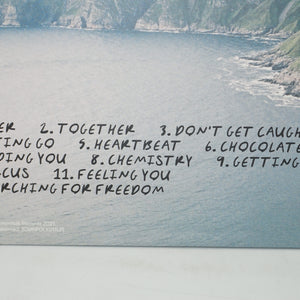 ER 2. TOGETHER 3. DON'T GET CAUGH
TING GO 5. HEARTBEAT 6. CHOCOLATE
DING YOU 8. CHEMISTRY 9. GETTING
CUS 11. FEELING YOU
RCHING FOR FREEDOM